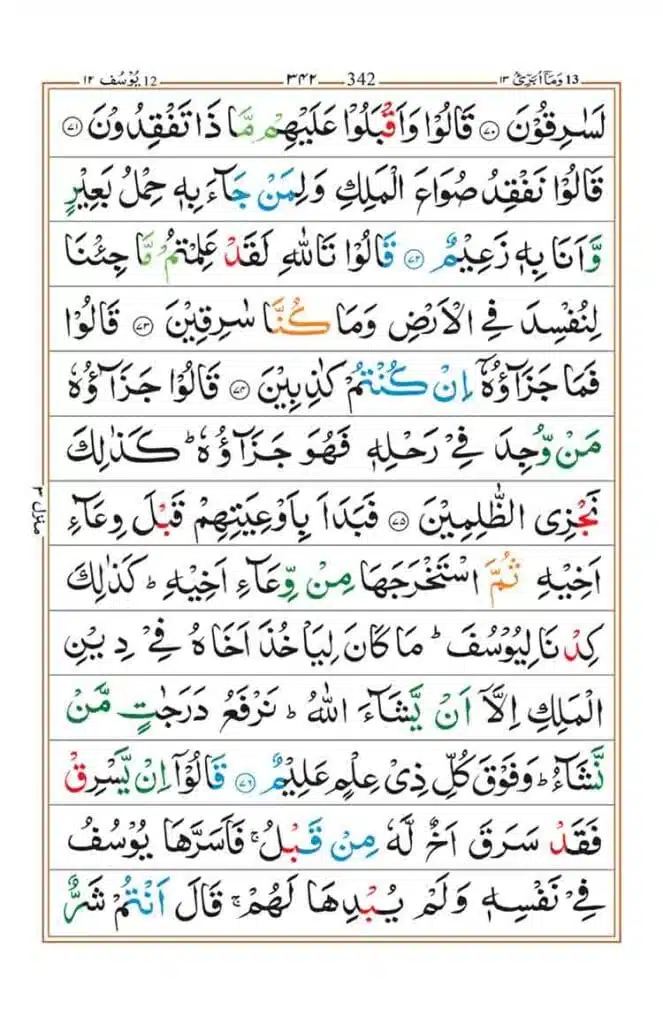 13 وَمَاۤ اُبَرِّئُ ١٣ 342 ٣٤٢ 12 يُوْسُف ١٢
لَسٰرِقُوْنَ ۝٧٠ قَالُوْا وَاَقْبَلُوْا عَلَيْهِمْ مَّا ذَا تَفْقِدُوْنَ ۝٧١
قَالُوْا نَفْقِدُ صُوَاعَ الْمَلِكِ وَلِمَنْ جَآءَ بِهٖ حِمْلُ بَعِيْرٍ
وَّاَنَا بِهٖ زَعِيْمٌ ۝٧٢ قَالُوْا تَاللّٰهِ لَقَدْ عَلِمْتُمْ مَّا جِئْنَا
لِنُفْسِدَ فِى الْاَرْضِ وَمَا كُنَّا سٰرِقِيْنَ ۝٧٣ قَالُوْا
فَمَا جَزَآؤُهٗۤ اِنْ كُنْتُمْ كٰذِبِيْنَ ۝٧٤ قَالُوْا جَزَآؤُهٗ
مَنْ وُّجِدَ فِىْ رَحْلِهٖ فَهُوَ جَزَآؤُهٗ ؕ كَذٰلِكَ
نَجْزِى الظّٰلِمِيْنَ ۝٧٥ فَبَدَاَ بِاَوْعِيَتِهِمْ قَبْلَ وِعَآءِ
اَخِيْهِ ثُمَّ اسْتَخْرَجَهَا مِنْ وِّعَآءِ اَخِيْهِ ؕ كَذٰلِكَ
كِدْنَا لِيُوْسُفَ ؕ مَا كَانَ لِيَاْخُذَ اَخَاهُ فِىْ دِيْنِ
الْمَلِكِ اِلَّاۤ اَنْ يَّشَآءَ اللّٰهُ ؕ نَرْفَعُ دَرَجٰتٍ مَّنْ
نَّشَآءُ ؕ وَفَوْقَ كُلِّ ذِىْ عِلْمٍ عَلِيْمٌ ۝٧٦ قَالُوْۤا اِنْ يَّسْرِقْ
فَقَدْ سَرَقَ اَخٌ لَّهٗ مِنْ قَبْلُ ۚ فَاَسَرَّهَا يُوْسُفُ
فِىْ نَفْسِهٖ وَلَمْ يُبْدِهَا لَهُمْ ۚ قَالَ اَنْتُمْ شَرٌّ
منزل ٣